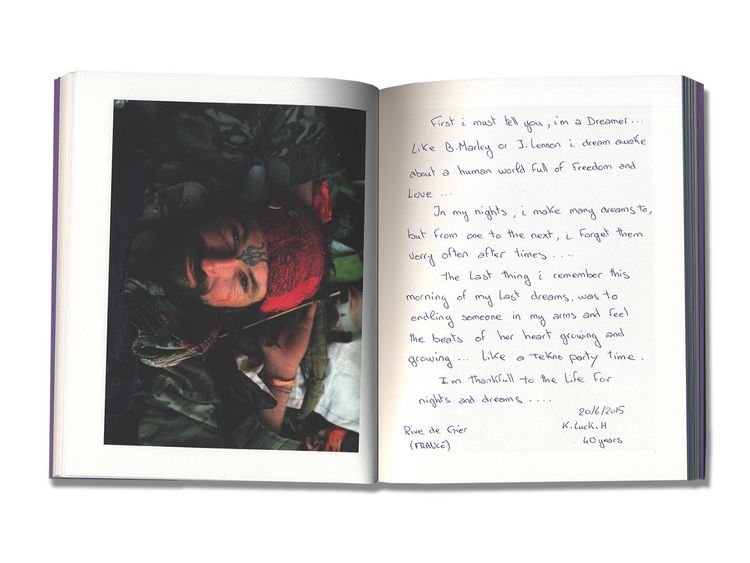 First i must tell you, i'm a Dreamer ...
Like B.Marley or J.Lennon i dream awake
about a human world full of Freedom and
Love ...
In my nights, i make many dreams to,
but from one to the next, i forget them
verry often after times ....
the Last thing i remember this
morning of my Last dreams, was to
endling someone in my arms and feel
the beats of her heart growing and
growing ... Like a Tekno party time.
I'm thankfull to the Life for
nights and dreams ....
20/6/2015
Rive de Gier K.Luck.H
(FRANCE) 40 years